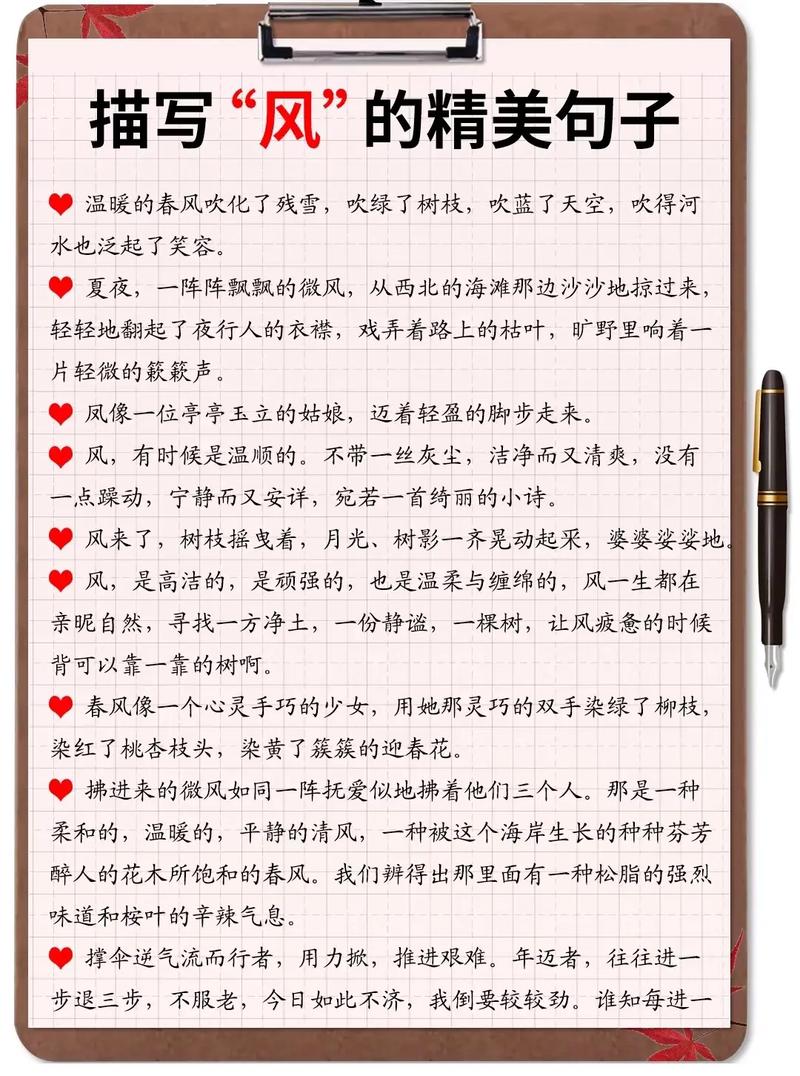 描写“风”的精美句子
温暖的春风吹化了残雪，吹绿了树枝，吹蓝了天空，吹得河
水也泛起了笑容。
夏夜，一阵阵飘飘的微风，从西北的海滩那边沙沙地掠过来，
轻轻地翻起了夜行人的衣襟，戏弄着路上的枯叶，旷野里响着一
片轻微的簌簌声。
凤像一位亭亭玉立的姑娘，迈着轻盈的脚步走来。
风，有时候是温顺的。不带一丝灰尘，洁净而又清爽，没有
一点躁动，宁静而又安详，宛若一首绮丽的小诗。
风来了，树枝摇曳着，月光、树影一齐晃动起采，婆婆娑娑地。
风，是高洁的，是顽强的，也是温柔与缠绵的，风一生都在
亲昵自然，寻找一方净土，一份静谧，一棵树，让风疲惫的时候
背可以靠一靠的树啊。
春风像一个心灵手巧的少女，用她那灵巧的双手染绿了柳枝，
染红了桃杏枝头，染黄了簇簇的迎春花。
拂进来的微风如同一阵抚爱似地拂着他们三个人。那是一种
柔和的，温暖的，平静的清风，一种被这个海岸生长的种种芬芳
醉人的花木所饱和的春风。我们辨得出那里面有一种松脂的强烈
味道和桉叶的辛辣气息。
撑伞逆气流而行者，用力掀，推进艰难。年迈者，往往进一
步退三步，不服老，今日如此不济，我倒要较较劲。谁知每进一